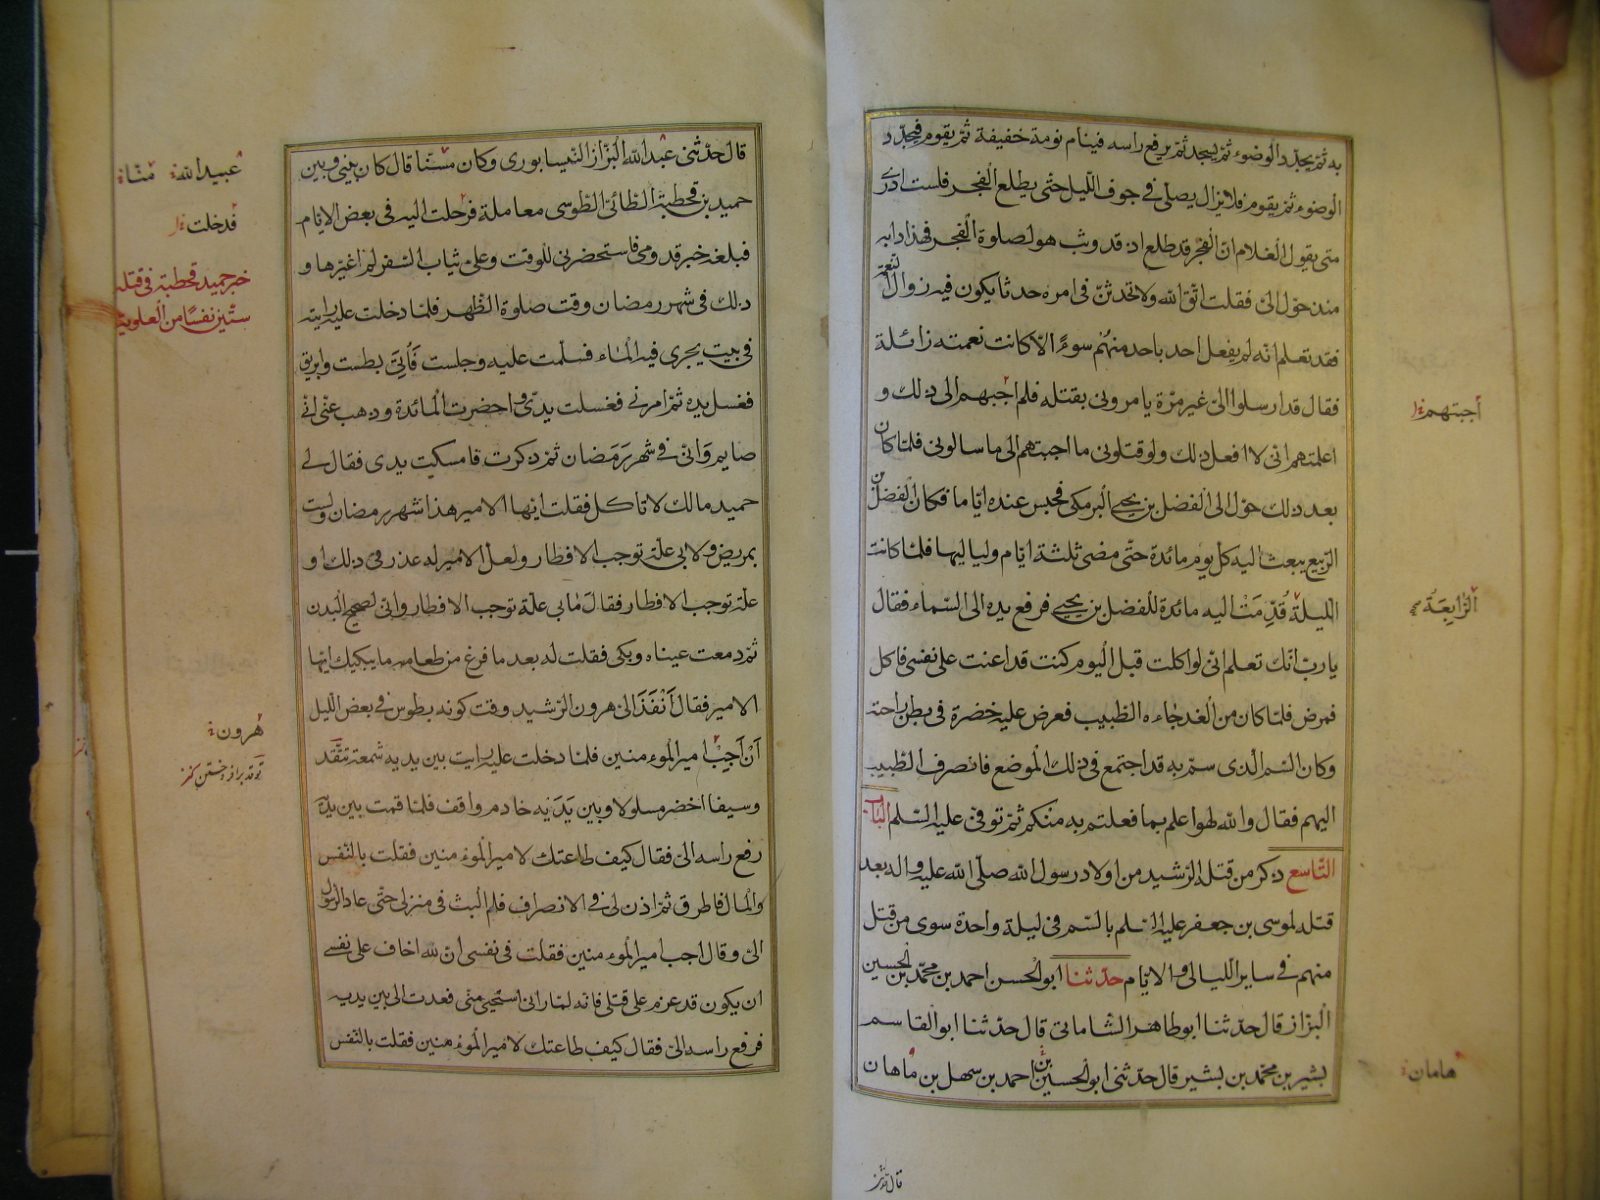 به ثم يجدد الوضوء ثم يسجد ثم يرفع راسه فينام نومة خفيفة ثم يقوم فيجدد
الوضوء ثم يقوم فلا يزال يصلى فى جوف الليل حتى يطلع الفجر فلست ادرى
متى يقول الغلام ان الفجر قد طلع اذ قد وثب هو لصلوة الفجر فهذا دابه
منذ حول الى فقلت اتق الله ولا تحدثن فى امره حدثا يكون فيه زوال النعمة
فقد تعلم انه لم يفعل احد باحد منهم سوءً الا كانت نعمته زائلة
فقال قد ارسلوا الى غير مرة يامرونى بقتله فلم اجبهم الى ذلك و
اعلمتهم انى لا افعل ذلك ولو قتلونى ما اجبتهم الى ما سالونى فلما كان
بعد ذلك حول الى الفضل بن يحيى البرمكى فحبس عنده اياما فكان الفضل بن
الربيع يبعث اليه كل يوم مائدة حتى مضى ثلثة ايام ولياليها فلما كانت
الليلة قُدِّمَتْ اليه مائدة للفضل بن يحيى فرفع يده الى السماء فقال
يا رب انك تعلم انى لو اكلت قبل اليوم كنت قد اعنت على نفسى فاكل
فمرض فلما كان من الغد جاءه الطبيب فعرض عليه خضرة فى بطن راحته
وكان السم الذى سم به قد اجتمع فى ذلك الموضع فانصرف الطبيب
اليهم فقال والله لهو اعلم بما فعلتم به منكم ثم توفى عليه السلم الباب
التاسع ذكر من قتله الرشيد من اولاد رسول الله صلى الله عليه واله بعد
قتله لموسى بن جعفر عليه السلم بالسم فى ليلة واحدة سوى من قتل
منهم فى ساير الليالى والايام حدثنا ابو الحسن احمد بن محمد بن الحسين
البزاز قال حدثنا ابو طاهر الشاماتى قال حدثنا ابو القاسم
بشير بن محمد بن بشير قال حدثنى ابو الحسين بن احمد بن سهل بن ماهان
اجبتهم
الرَّابِعَةُ
هامان
قال حدثنى عبد الله البزاز النيسابورى وكان مسنا قال كان بينى وبين
حميد بن قحطبة الطائى الطوسى معاملة فرحلت اليه فى بعض الايام
فبلغه خبر قدومى فاستحضرنى للوقت وعلى ثياب السفر لم اغيرها و
ذلك فى شهر رمضان وقت صلوة الظهر فلما دخلت عليه رايته
فى بيت يجرى فيه الماء فسلمت عليه وجلست فَاُتِىَ بطست وابريق
فغسل يده ثم امرنى فغسلت يدى واحضرت المائدة وذهب عنى انى
صايم وانى فى شهر رَمَضان ثم ذكرت فامسكت يدى فقال لى
حميد مالك لا تاكل فقلت ايها الامير هذا شهر رمضان ولست
بمريض ولا بى علة توجب الافطار ولعل الامير له عذر فى ذلك او
علة توجب الافطار فقال ما بى علة توجب الافطار وانى لصحيح البدن
ثم دمعت عيناه وبكى فقلت له بعد ما فرغ من طعامه ما يبكيك ايها
الامير فقال اَنْفَذَ الى هرون الرشيد وقت كونه بطوس فى بعض الليل
اَنْ اَجِبْ امير المؤمنين فلما دخلت عليه رايت بين يديه شمعة تتقد
وسيفا اخضر مسلولا وبين يَدَيْه خادم واقف فلما قمت بين يديه
رفع راسه الى فقال كيف طاعتك لامير المؤمنين فقلت بالنفس
والمال فاطرق ثم اذن لى فى الانصراف فلم البث فى منزلى حتى عاد الرسول
الى وقال اجب امير المؤمنين فقلت فى نفسى انا لله اخاف على نفسى
ان يكون قد عزم على قتلى فانه لما رانى استحيى منى فعدت الى بين يديه
فرفع راسه الى فقال كيف طاعتك لامير المؤمنين فقلت بالنفس
عبيد الله
فدخلت
خبر حميد قحطبة فى قتله
ستين نفسًا من العلوية
هرون